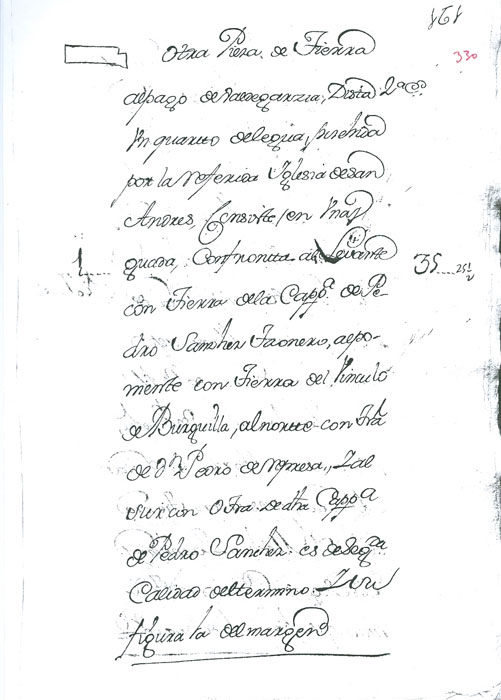 181
330
Otra Pieza de Tierra
al pago de Valdegarzia, Dista
Un quarto de legua, posehida
por la referida Yglesia de san
Andres, Consiste en Una
1 quada, Confronta al Levante 35
con Tierra de la Capp.ª de Pe-
dro Sanchez Faonero, al po-
niente con Tierra del Vinculo
de Burguilla, al norte con tra
de Dn Pedro de , Y al
sur con Otra de dha Capp.ª
de Pedro Sanchez es de Seg.da
Calidad del termino Y su
figura la del margen